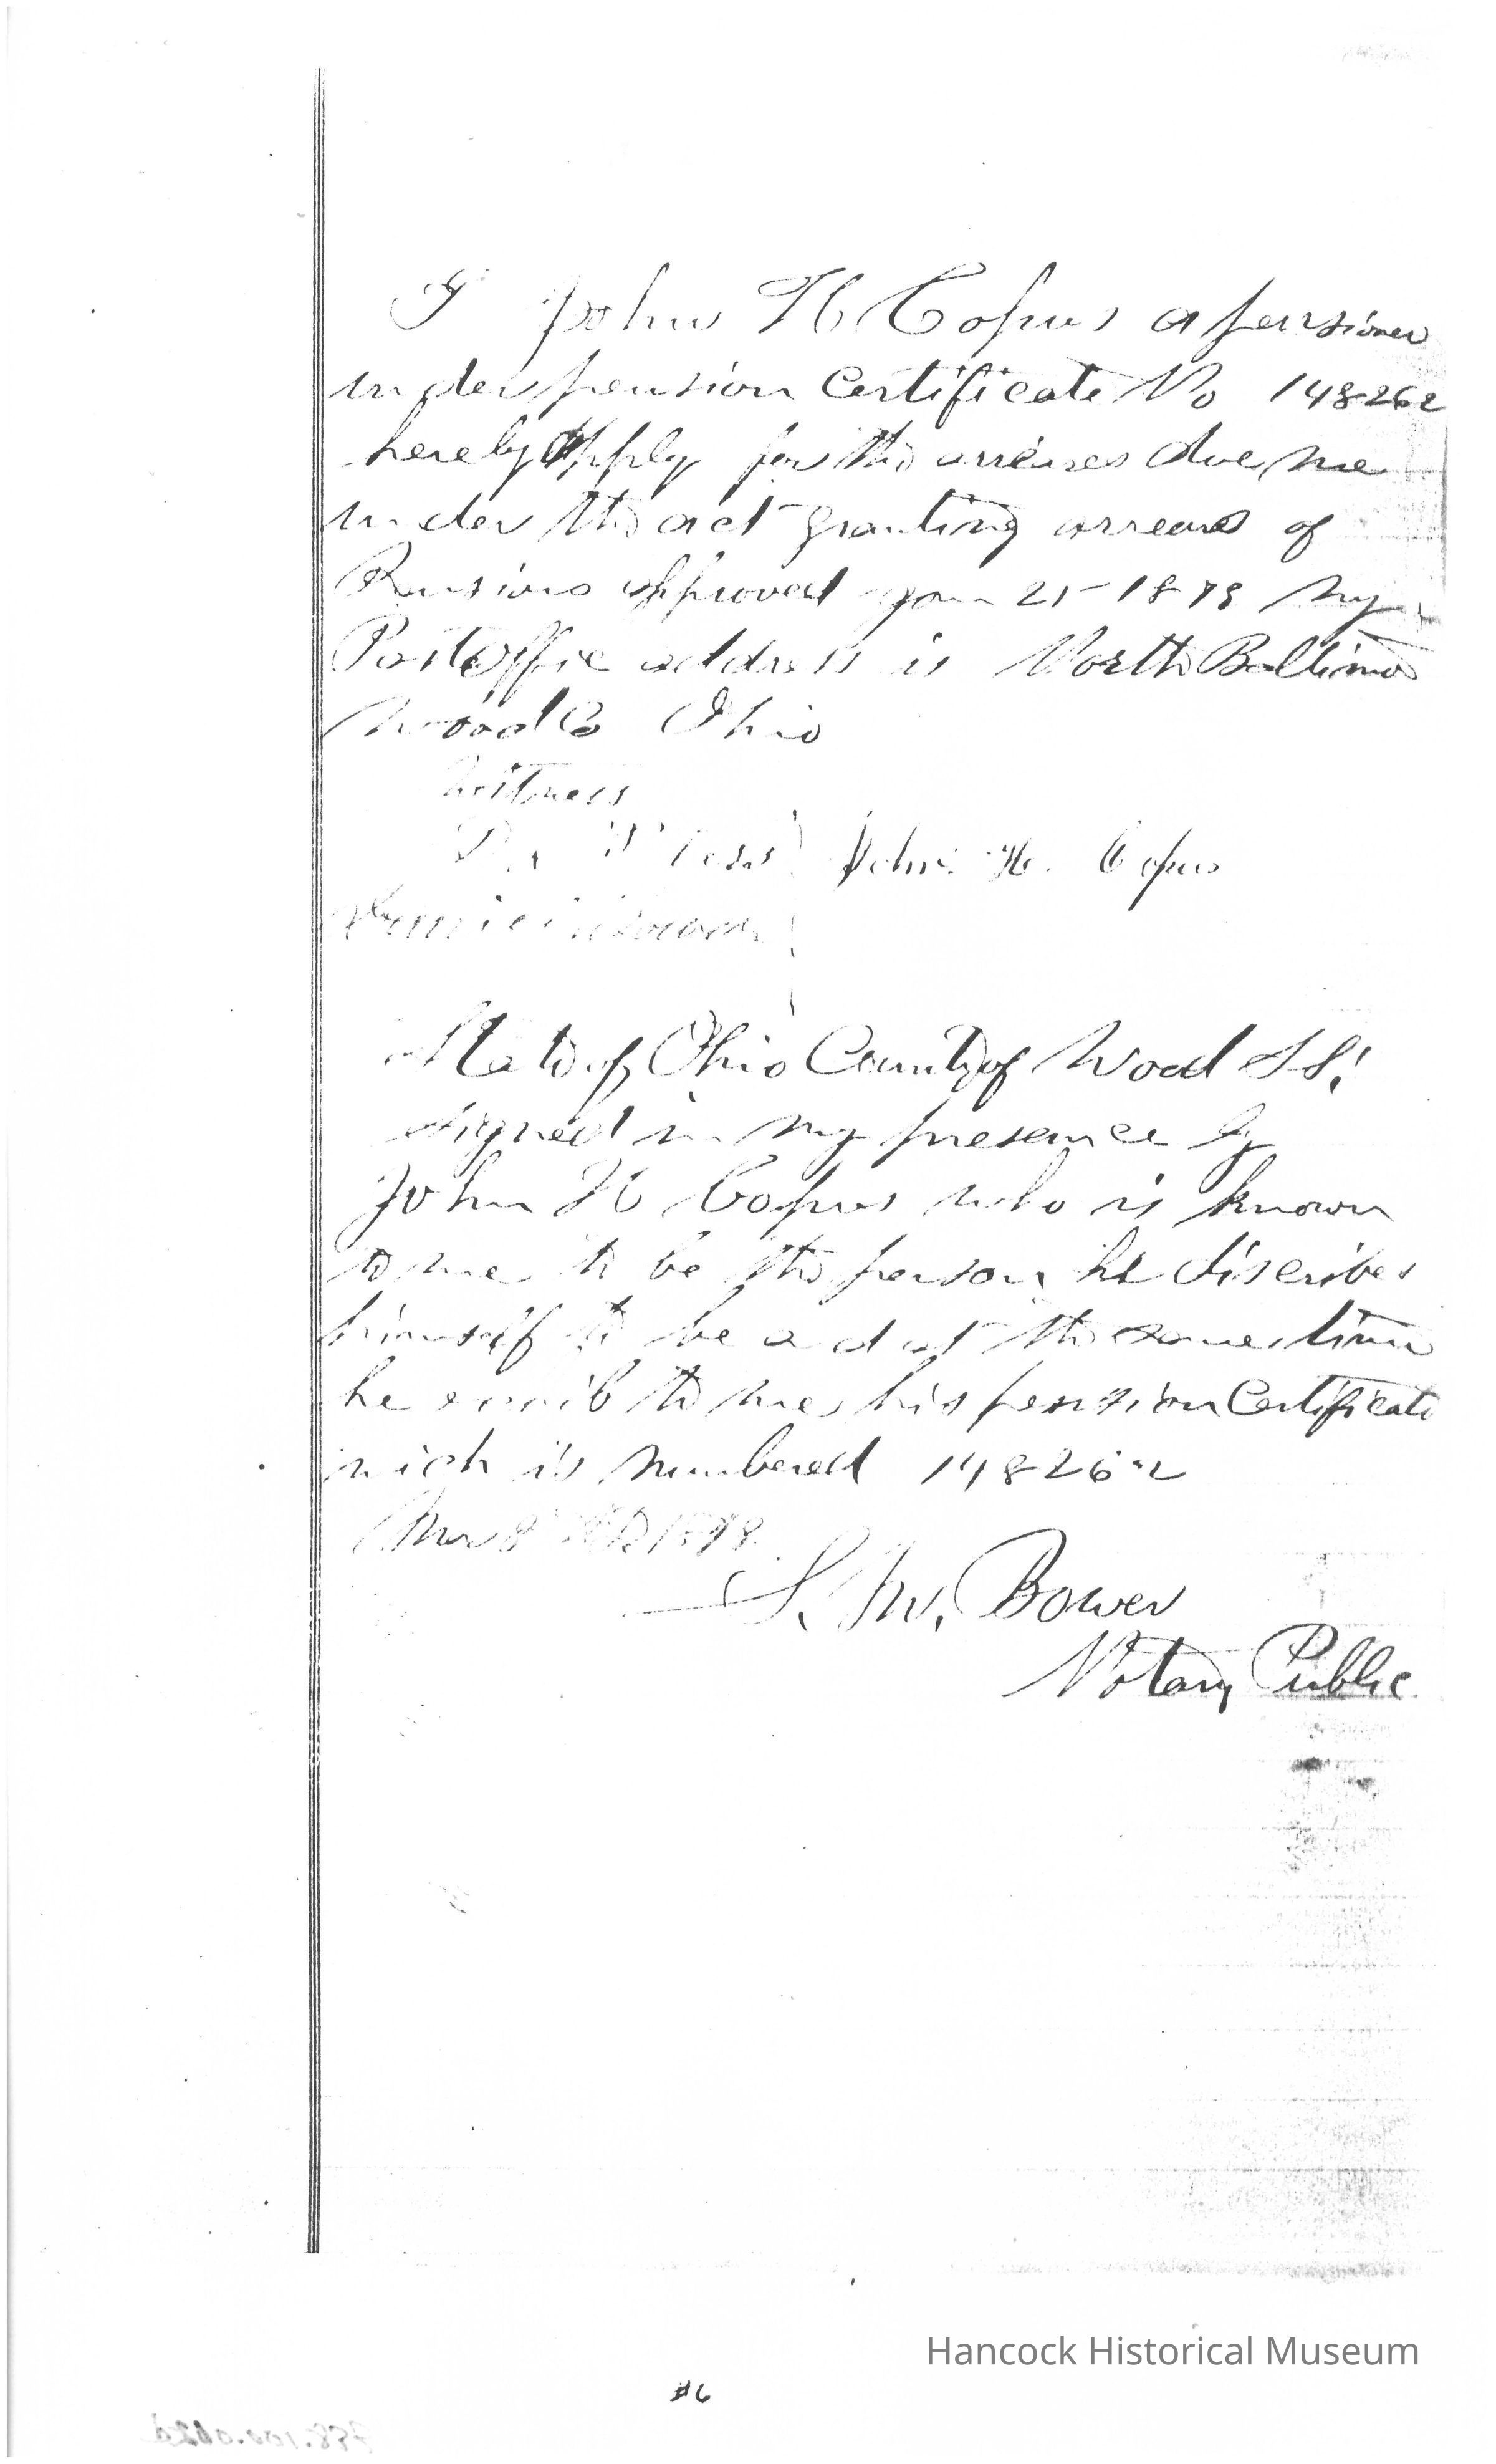 I John H Copus a pensioner
under pension Certificate No 148262
hereby Apply for the arreares due me
under the act granting arrears of
Pensions approved Jan 25 1879 My
Post Office address is North Baltimor
Wood Co Ohio
Witness
John H. Copus
State of Ohio County of Wood SS!
Signed in my presence by
John H Copus who is known
to me to be the person he discribes
himself to be ad at the same time
he to me his pension Certificate
wich is numbered 148262
1879
S. W. Bower
Notary Public
Hancock Historical Museum
#6